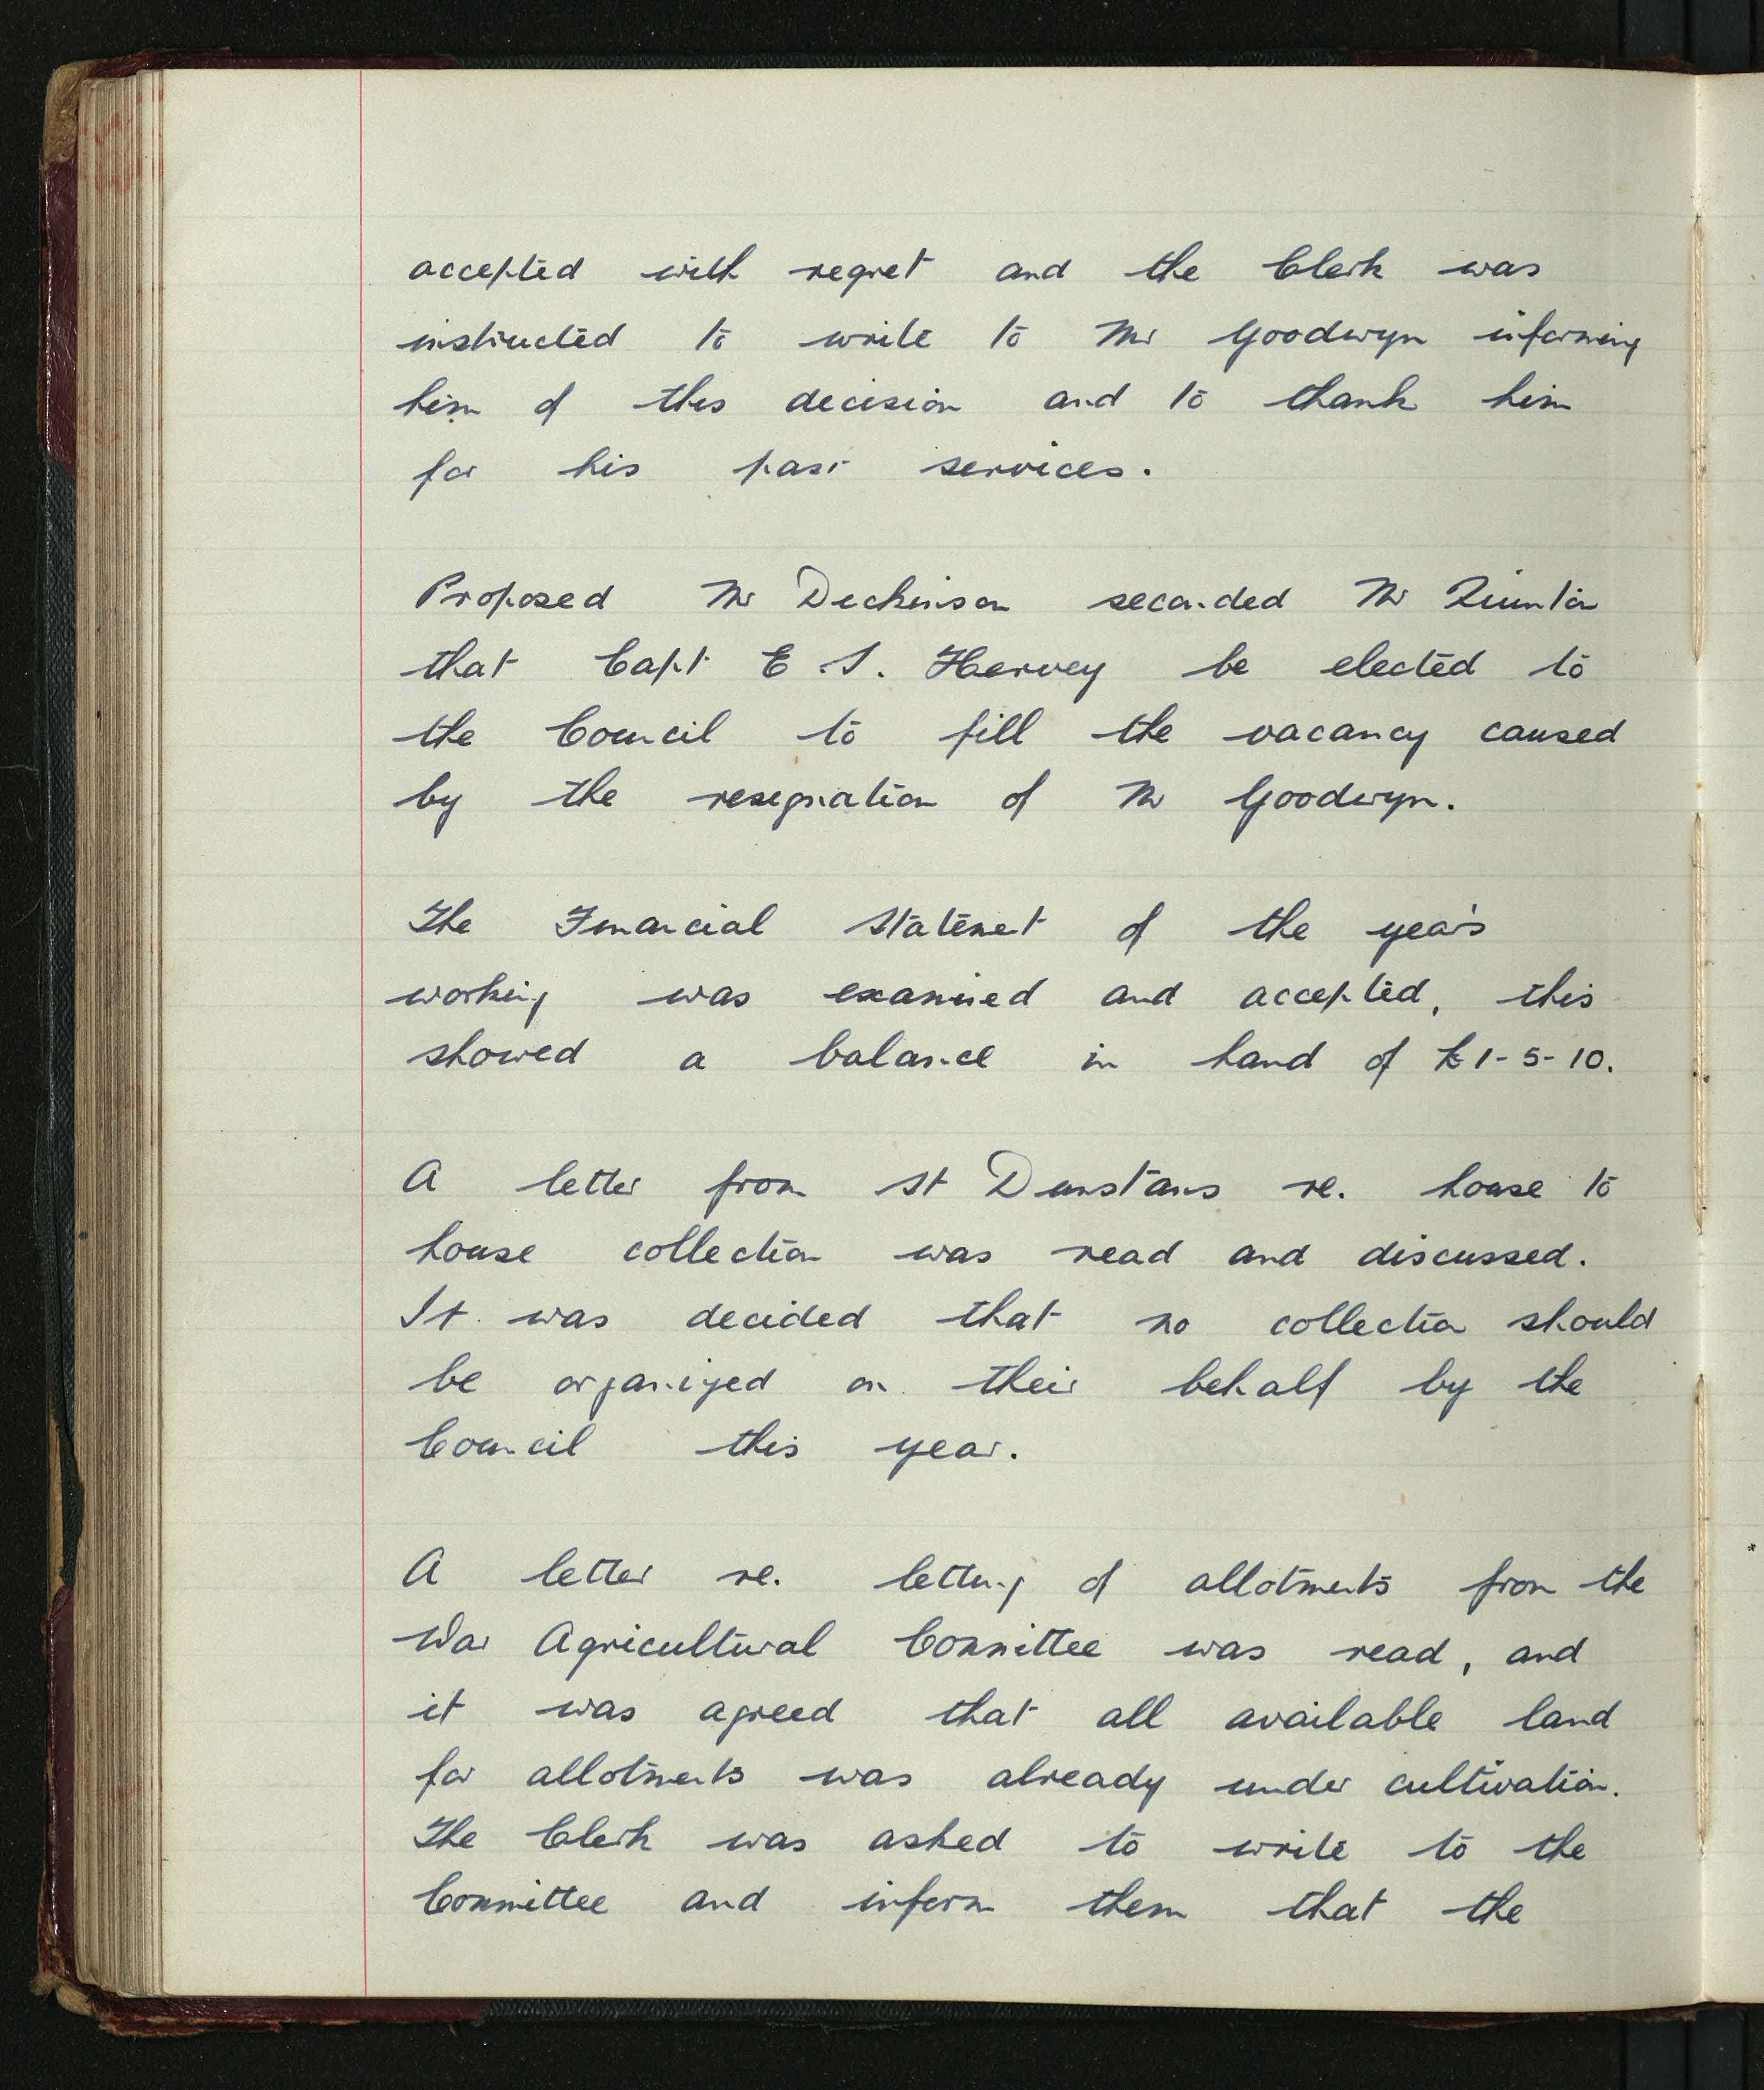 accepted with regret and the Clerk was
instructed to write to Mr Goodwyn informing
him of this decision and to thank him
for his past services.
Proposed Mr Dickinson seconded Mr Quinton
that Capt E. S. Hervey be elected to
the Council to fill the vacancy caused
by the resignation of Mr Goodwyn.
The Financial Statement of the year's
working was examined and accepted, this
showed a balance in hand of £1-5-10.
A letter from St Dunstans re. house to
house collection was read and discussed.
It was decided that no collection should
be organized on their behalf by the
Council this year.
A letter re. letting of allotments from the
War Agricultural Committee was read, and
it was agreed that all available land
for allotments was already under cultivation.
The Clerk was asked to write to the
Committee and inform them that the